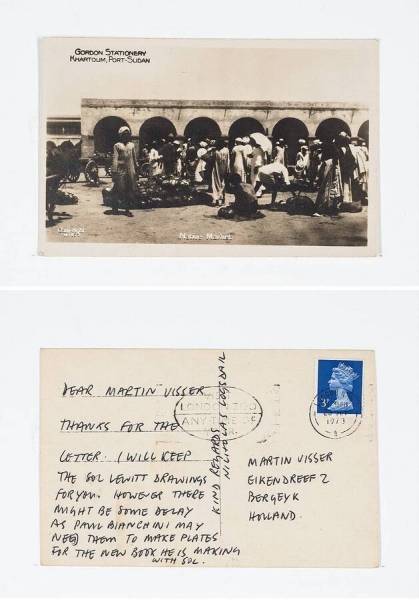 GORDON STATIONERY
KHARTOUM, PORT-SUDAN
Native Market
DEAR MARTIN VISSER
THANKS FOR THE
LETTER. I WILL KEEP
THE SOL LEWITT DRAWINGS
FOR YOU. HOWEVER THERE
MIGHT BE SOME DELAY
AS PAUL BIANCHINI MAY
NEED THEM TO MAKE PLATES
FOR THE NEW BOOK HE IS MAKING
WITH SOL.
KIND REGARDS
NICHOLAS LOGSDAIL
MARTIN VISSER
EIKENDREEF 2
BERGEYK
HOLLAND.
1973